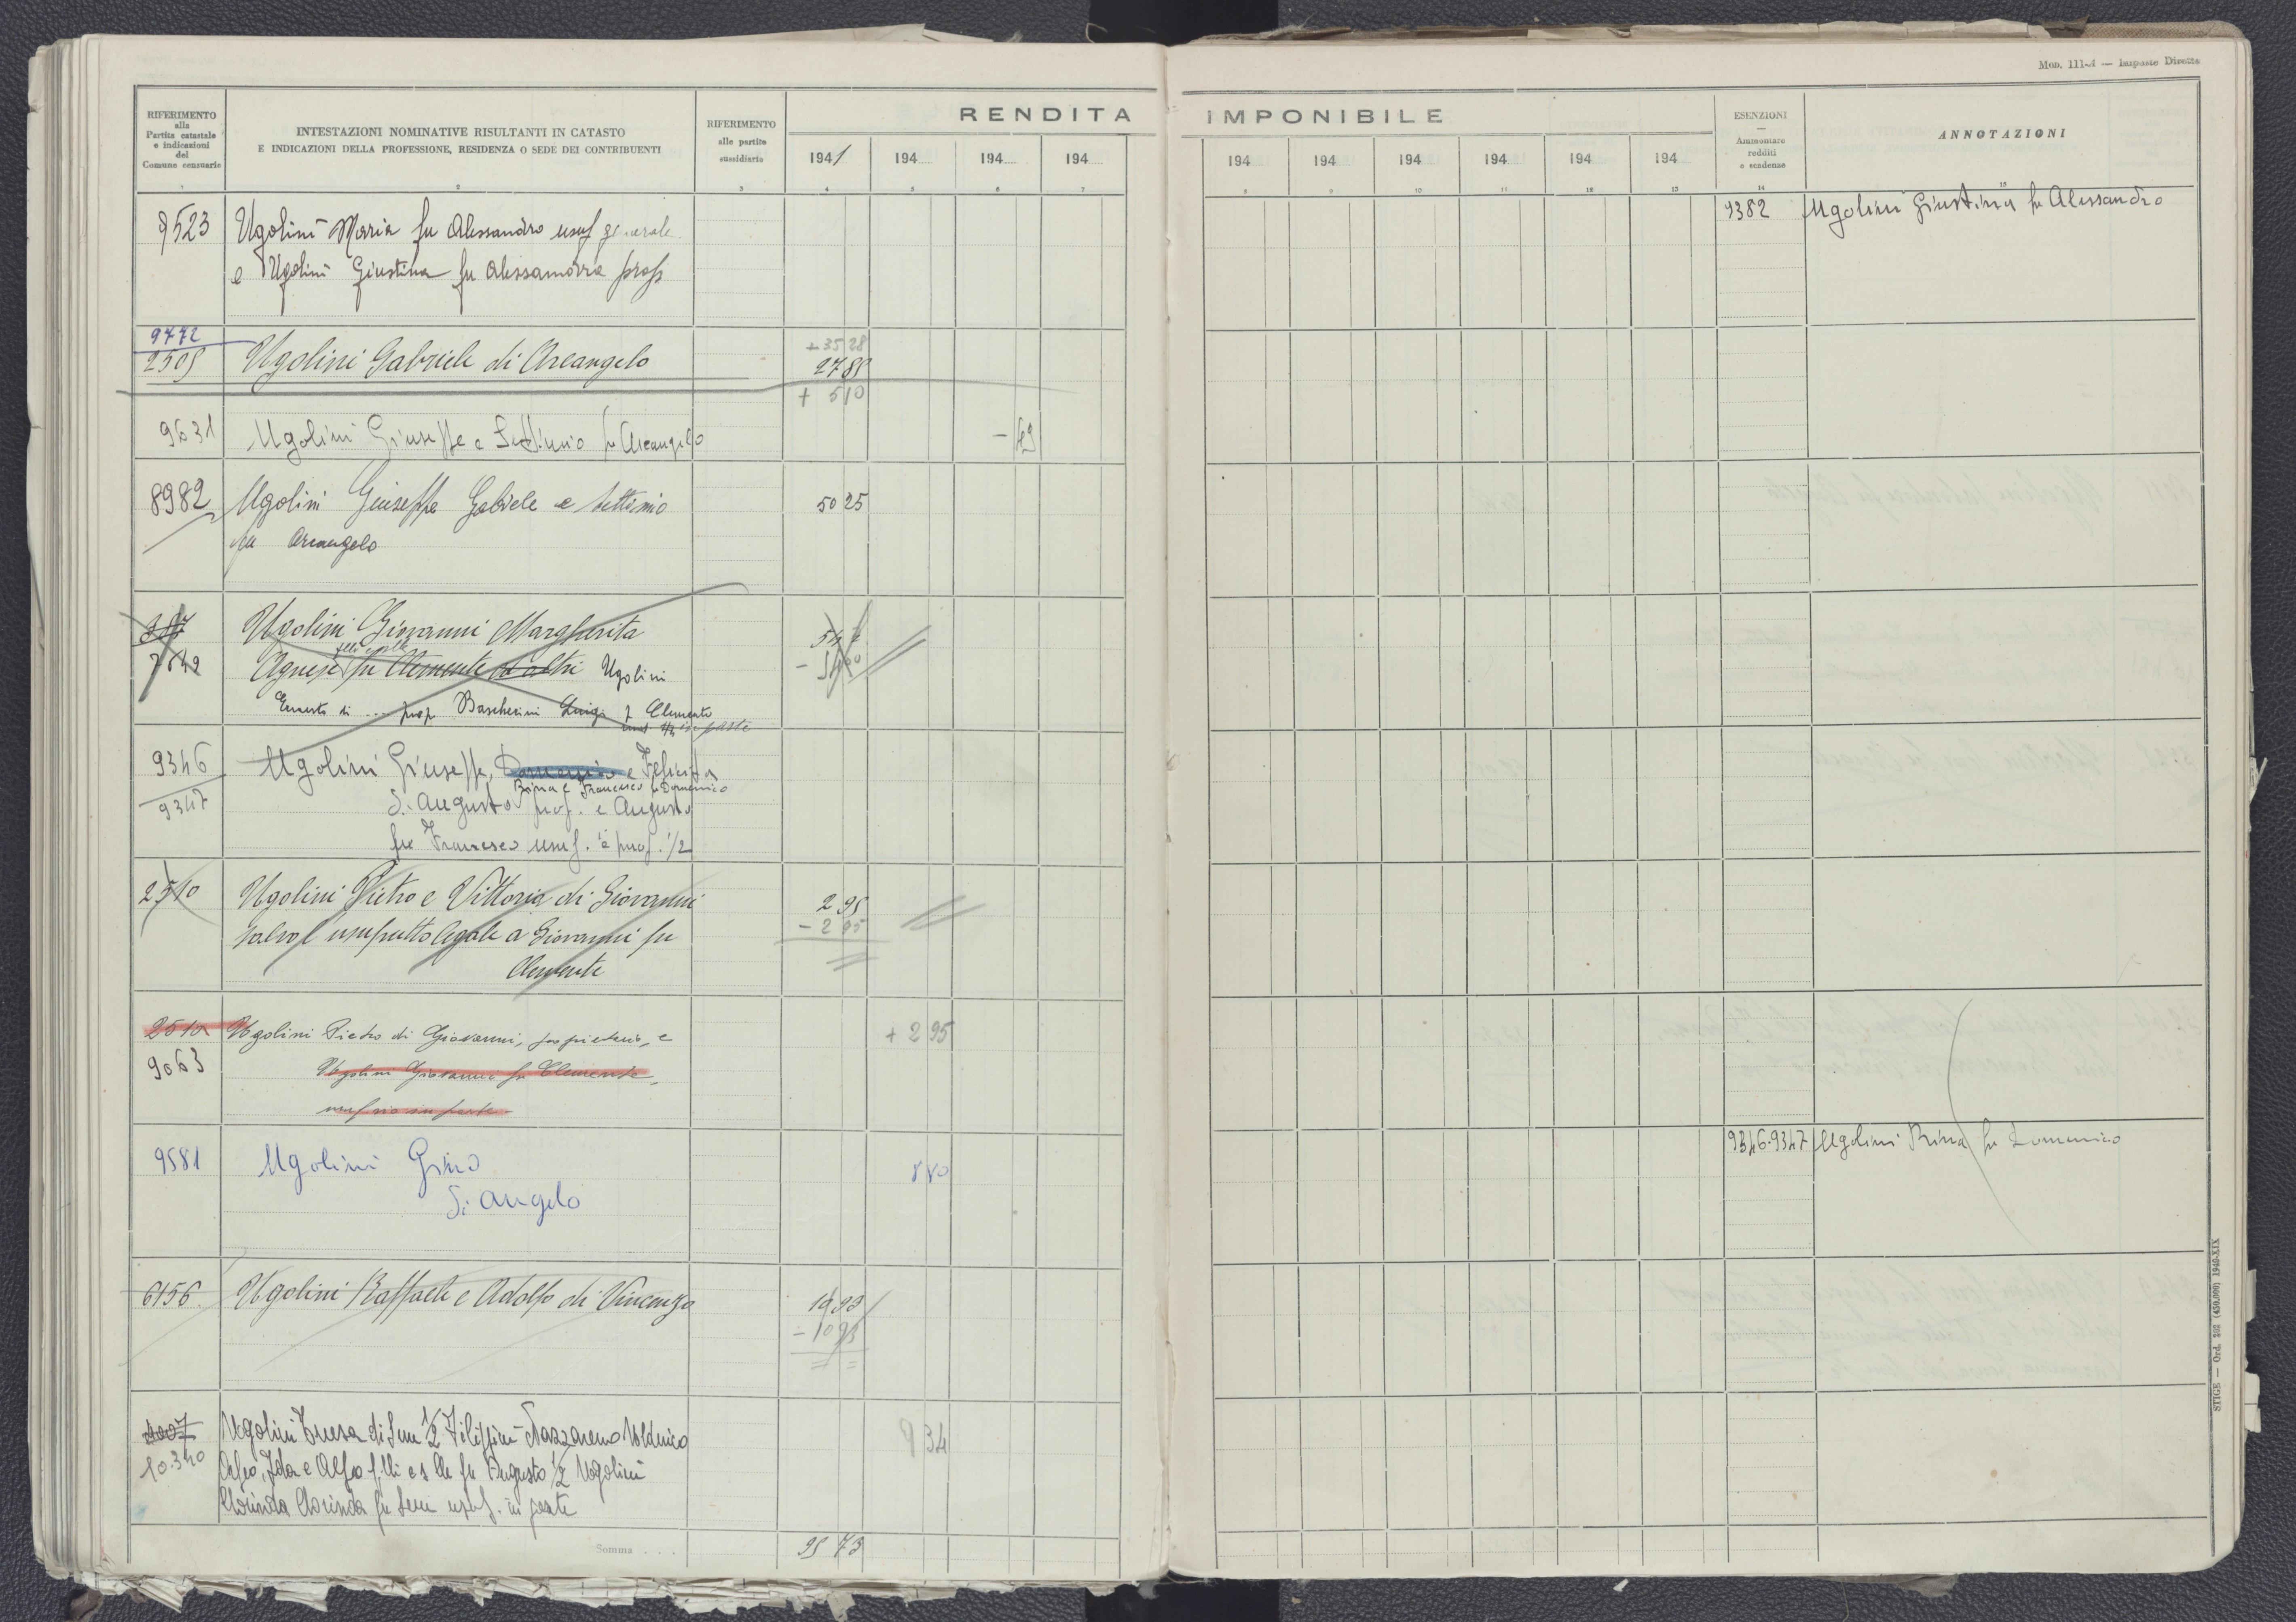 Mod. 111-A — Imposte Dirette
RIFERIMENTO
alla
Partita catastale
e indicazioni
del
Comune censuario
1
INTESTAZIONI NOMINATIVE RISULTANTI IN CATASTO
E INDICAZIONI DELLA PROFESSIONE, RESIDENZA O SEDE DEI CONTRIBUENTI
2
RIFERIMENTO
alle partite
sussidiarie
3
RENDITA IMPONIBILE
1941 194 194 194 194 194 194 194 194 194
4 5 6 7 8 9 10 11 12 13
ESENZIONI
—
Ammontare
redditi
e scadenze
14
ANNOTAZIONI
15
9523 Ugolini Maria fu Alessandro usuf generale
e Ugolini Giustina fu Alessandro prop
9382 Ugolini Giustina fu Alessandro
9772
2509 Ugolini Gabriele di Arcangelo
+ 35 28
27 89
+ 5 10
9631 Ugolini Giuseppe e Settimio fu Arcangelo - 49
8982 Ugolini Giuseppe Gabriele e Settimio 50 25
fu Arcangelo
Ugolini Giovanni Margherita
7642 Agnese flli e slle fu Clemente ed altri Ugolini
Ernesto di ... prop Bascherini Luigi f Clemente
usuf in parte
9346 Ugolini Giuseppe, e Felicita
9347 Rina e Francesco fu Domenico
di Augusto prof. e Augusto
fu Francesco usuf. e prof. 1/2
2510 Ugolini Pietro e Vittoria di Giovanni 2 95
salvo l'usufrutto legale a Giovanni fu - 2 95
Clemente
2510 Ugolini Pietro di Giovanni, proprietario, e + 2 95
9063 Ugolini Giovanni fu Clemente,
usufrio in parte
9581 Ugolini Gino 8 40
di Angelo
9346-9347 Ugolini Rina fu Domenico
6156 Ugolini Raffaele e Adolfo di Vincenzo 10 93
- 10 93
4007 Ugolini Teresa di Sem 1/2 Filippini Nazzareno Volderico 9 34
10.340 Orfeo, Ida e Alfeo f.lli e slle fu Augusto 1/2 Ugolini
Clorinda Clorinda fu Sem usuf. in parte
Somma . . . 95 73
STIGE — Ord. 202 (450.000) 1940-XIX